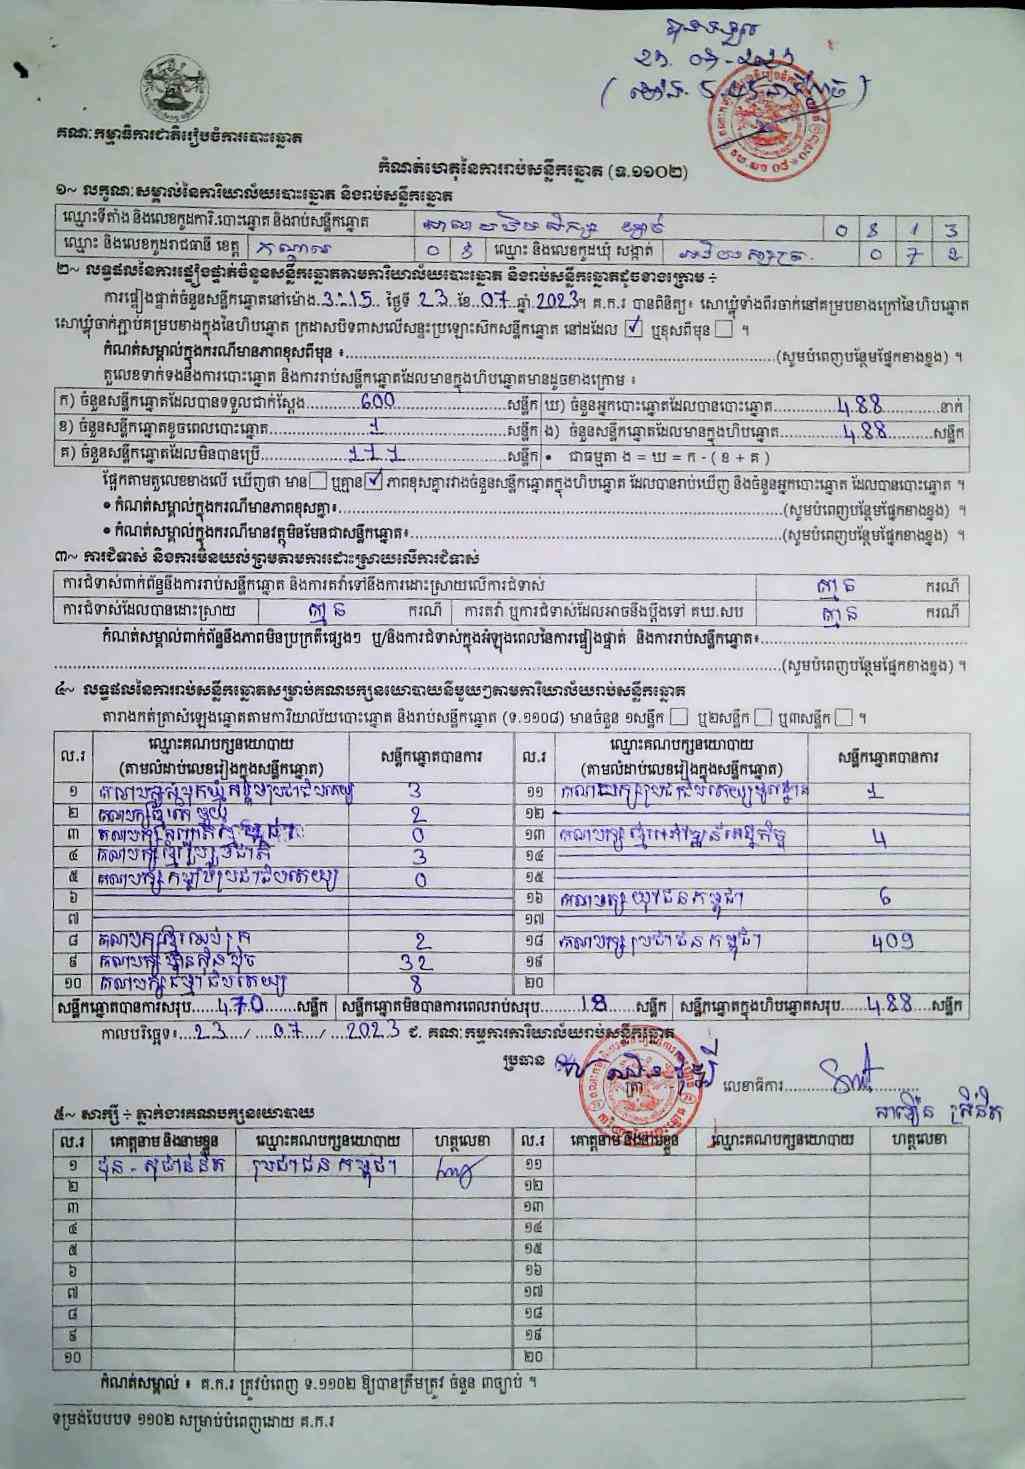 ២៣. ០៧-២០២៣
គណៈកម្មាធិការជាតិរៀបចំការបោះឆ្នោត
កំណត់ហេតុនៃការរាប់សន្លឹកឆ្នោត (ទ.១១០២)
១~ លក្ខណៈសម្គាល់នៃការិយាល័យបោះឆ្នោត និងរាប់សន្លឹកឆ្នោត
ឈ្មោះទីតាំង និងលេខកូដការិ.បោះឆ្នោត និងរាប់សន្លឹកឆ្នោត 0 8 1 3
ឈ្មោះ និងលេខកូដរាជធានី ខេត្ត កណ្តាល 0 8 ឈ្មោះ និងលេខកូដឃុំ សង្កាត់ 0 7 2
២~ លទ្ធផលនៃការផ្ទៀងផ្ទាត់ចំនួនសន្លឹកឆ្នោតតាមការិយាល័យបោះឆ្នោត និងរាប់សន្លឹកឆ្នោតដូចខាងក្រោម ÷
ការផ្ទៀងផ្ទាត់ចំនួនសន្លឹកឆ្នោតនៅម៉ោង.3:15.. ថ្ងៃទី 23.ខែ.07.ឆ្នាំ.2023។ គ.ក.រ បានពិនិត្យ៖ សោឃ្លុំទាំងពីរចាក់នៅគម្របខាងក្រៅនៃហិបឆ្នោត
សោឃ្លុំចាក់ភ្ជាប់គម្របខាងក្នុងនៃហិបឆ្នោត ក្រដាសបិទពាសលើសន្ទះប្រឡោះសិកសន្លឹកឆ្នោត នៅដដែល ☑ ឬខុសពីមុន ☐ ។
កំណត់សម្គាល់ក្នុងករណីមានភាពខុសពីមុន ៖.....(សូមបំពេញបន្ថែមផ្នែកខាងខ្នង) ។
តួលេខទាក់ទងនឹងការបោះឆ្នោត និងការរាប់សន្លឹកឆ្នោតដែលមានក្នុងហិបឆ្នោតមានដូចខាងក្រោម ៖
ក) ចំនួនសន្លឹកឆ្នោតដែលបានទទួលជាក់ស្តែង.....600.....សន្លឹក ឃ) ចំនួនអ្នកបោះឆ្នោតដែលបានបោះឆ្នោត.....488.....នាក់
ខ) ចំនួនសន្លឹកឆ្នោតខូចពេលបោះឆ្នោត.....1.....សន្លឹក ង) ចំនួនសន្លឹកឆ្នោតដែលមានក្នុងហិបឆ្នោត.....488.....សន្លឹក
គ) ចំនួនសន្លឹកឆ្នោតដែលមិនបានប្រើ.....111.....សន្លឹក • ជាធម្មតា ង = ឃ = ក - ( ខ + គ )
ផ្អែកតាមតួលេខខាងលើ ឃើញថា មាន ☐ ឬគ្មាន ☑ ភាពខុសគ្នារវាងចំនួនសន្លឹកឆ្នោតក្នុងហិបឆ្នោត ដែលបានរាប់ឃើញ និងចំនួនអ្នកបោះឆ្នោត ដែលបានបោះឆ្នោត ។
• កំណត់សម្គាល់ក្នុងករណីមានភាពខុសគ្នា៖.....(សូមបំពេញបន្ថែមផ្នែកខាងខ្នង) ។
• កំណត់សម្គាល់ក្នុងករណីមានវត្ថុមិនមែនជាសន្លឹកឆ្នោត៖.....(សូមបំពេញបន្ថែមផ្នែកខាងខ្នង) ។
៣~ ការជំទាស់ និងការមិនយល់ព្រមតាមការដោះស្រាយលើការជំទាស់
ការជំទាស់ពាក់ព័ន្ធនឹងការរាប់សន្លឹកឆ្នោត និងការតវ៉ាទៅនឹងការដោះស្រាយលើការជំទាស់ គ្មាន ករណី
ការជំទាស់ដែលបានដោះស្រាយ គ្មាន ករណី ការតវ៉ា ឬការជំទាស់ដែលអាចនឹងប្តឹងទៅ គឃ.សប គ្មាន ករណី
កំណត់សម្គាល់ពាក់ព័ន្ធនឹងភាពមិនប្រក្រតីផ្សេងៗ ឬ/និងការជំទាស់ក្នុងអំឡុងពេលនៃការផ្ទៀងផ្ទាត់ និងការរាប់សន្លឹកឆ្នោត៖.....
.....(សូមបំពេញបន្ថែមផ្នែកខាងខ្នង) ។
៤~ លទ្ធផលនៃការរាប់សន្លឹកឆ្នោតសម្រាប់គណបក្សនយោបាយនីមួយៗតាមការិយាល័យរាប់សន្លឹកឆ្នោត
តារាងកត់ត្រាសំឡេងឆ្នោតតាមការិយាល័យបោះឆ្នោត និងរាប់សន្លឹកឆ្នោត (ទ.១១០៨) មានចំនួន ១សន្លឹក ☐ ឬ២សន្លឹក ☐ ឬ៣សន្លឹក ☐ ។
ល.រ ឈ្មោះគណបក្សនយោបាយ (តាមលំដាប់លេខរៀងក្នុងសន្លឹកឆ្នោត) សន្លឹកឆ្នោតបានការ ល.រ ឈ្មោះគណបក្សនយោបាយ (តាមលំដាប់លេខរៀងក្នុងសន្លឹកឆ្នោត) សន្លឹកឆ្នោតបានការ
១ គណបក្សសំបុកឃ្មុំសង្គមប្រជាធិបតេយ្យ 3 ១១ គណបក្សប្រជាធិបតេយ្យមូលដ្ឋាន 1
២ គណបក្សខ្មែររួបរួម 2 ១២
៣ 0 ១៣ គណបក្សខ្មែរអភិវឌ្ឍន៍សេដ្ឋកិច្ច 4
៤ គណបក្សខ្មែររួបរួមជាតិ 3 ១៤
៥ គណបក្សកម្លាំងប្រជាធិបតេយ្យ 0 ១៥
៦ ១៦ គណបក្សយុវជនកម្ពុជា 6
៧ ១៧
៨ គណបក្សខ្មែរឈប់ក្រ 2 ១៨ គណបក្សប្រជាជនកម្ពុជា 409
៩ គណបក្សហ្វ៊ុនស៊ិនប៉ិច 32 ១៩
១០ គណបក្សធម្មាធិបតេយ្យ 8 ២០
សន្លឹកឆ្នោតបានការសរុប.....470.....សន្លឹក សន្លឹកឆ្នោតមិនបានការពេលរាប់សរុប.....18.....សន្លឹក សន្លឹកឆ្នោតក្នុងហិបឆ្នោតសរុប.....488.....សន្លឹក
កាលបរិច្ឆេទ៖...23.../...07.../...2023 ជ. គណៈកម្មការការិយាល័យរាប់សន្លឹកឆ្នោត
ប្រធាន
ត្រា
លេខាធិការ.....
៥~ សាក្សី ÷ ភ្នាក់ងារគណបក្សនយោបាយ
ល.រ គោត្តនាម និងនាមខ្លួន ឈ្មោះគណបក្សនយោបាយ ហត្ថលេខា ល.រ គោត្តនាម និងនាមខ្លួន ឈ្មោះគណបក្សនយោបាយ ហត្ថលេខា
១ ប្រជាជនកម្ពុជា ១១
២ ១២
៣ ១៣
៤ ១៤
៥ ១៥
៦ ១៦
៧ ១៧
៨ ១៨
៩ ១៩
១០ ២០
កំណត់សម្គាល់ ៖ គ.ក.រ ត្រូវបំពេញ ទ.១១០២ ឱ្យបានត្រឹមត្រូវ ចំនួន ៣ច្បាប់ ។
ទម្រង់បែបបទ ១១០២ សម្រាប់បំពេញដោយ គ.ក.រ